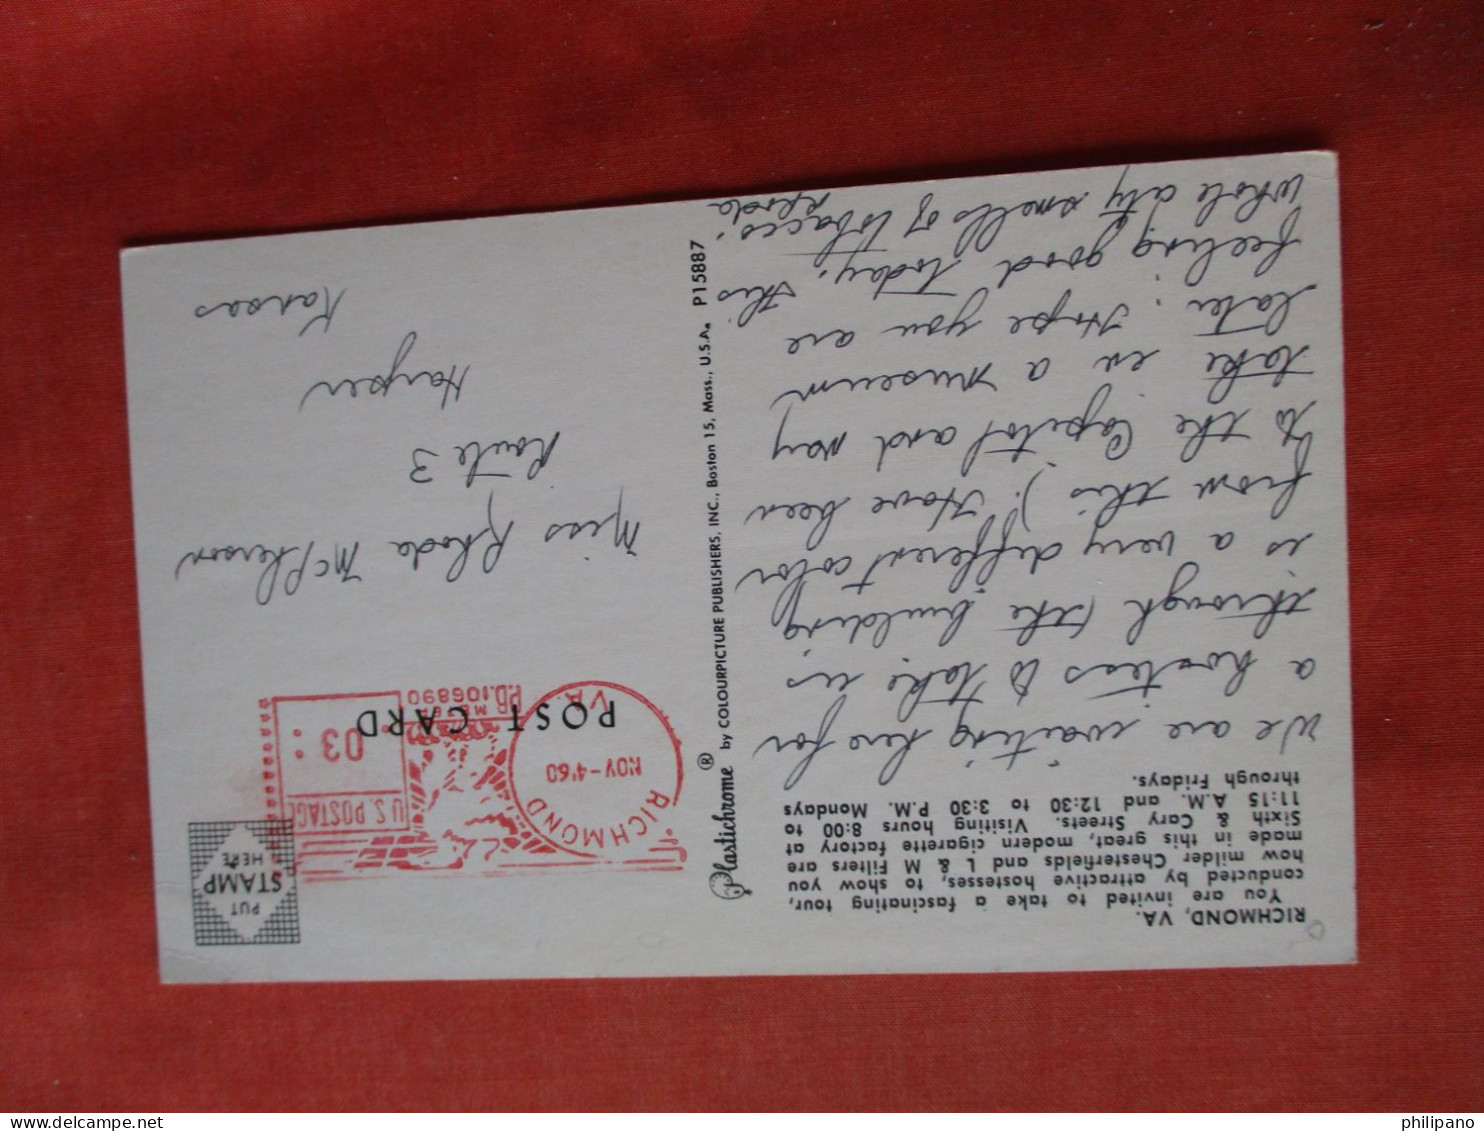 RICHMOND, VA.
You are invited to take a fascinating tour,
conducted by attractive hostesses, to show you
how milder Chesterfields and L & M Filters are
made in this great, modern cigarette factory at
Sixth & Cary Streets. Visiting hours 8:00 to
11:15 A.M. and 12:30 to 3:30 P.M. Mondays
through Fridays.
We are waiting here for
a hostess to take us
through (the building
is a very different color
from this). Have been
to the Capitol and may
take in a museum
later. Hope you are
feeling good today, this
whole city smells of tobacco.
Rhoda
Plastichrome ® by COLOURPICTURE PUBLISHERS, INC., Boston 15, Mass., U.S.A. P15887
POST CARD
PUT
STAMP
HERE
RICHMOND
VA.
NOV-4'60
U.S. POSTAGE
03
METER
P.B.106890
Miss Rhoda McPherson
Route 3
Harper
Kansas
philipano